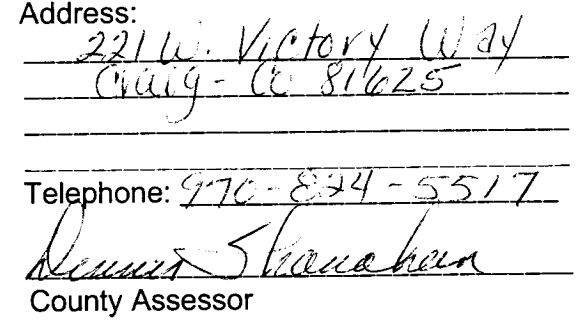 Address:
221 W. Victory Way
Craig - CO 81625
Telephone: 970-824-5517
Dennis Shanahan
County Assessor